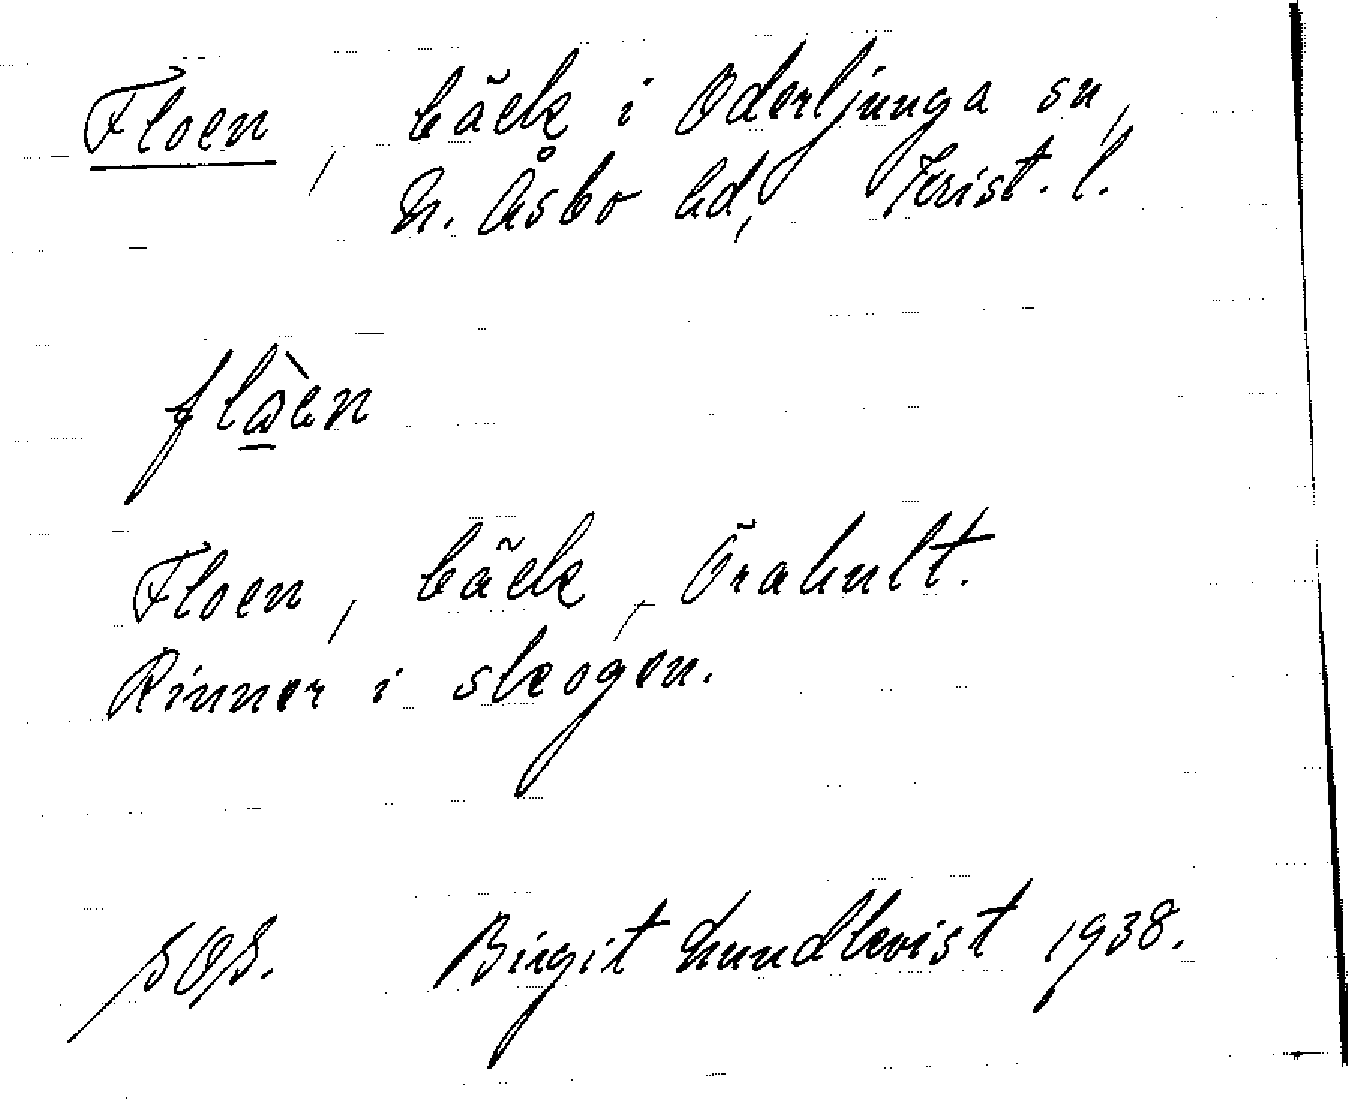 Floen, bäck i Oderljunga sn,
N. Åsbo hd, Krist. l.
flòen
Floen, bäck, Örahult.
Rinner i skogen.
SOS. Birgit Lundkvist 1938.